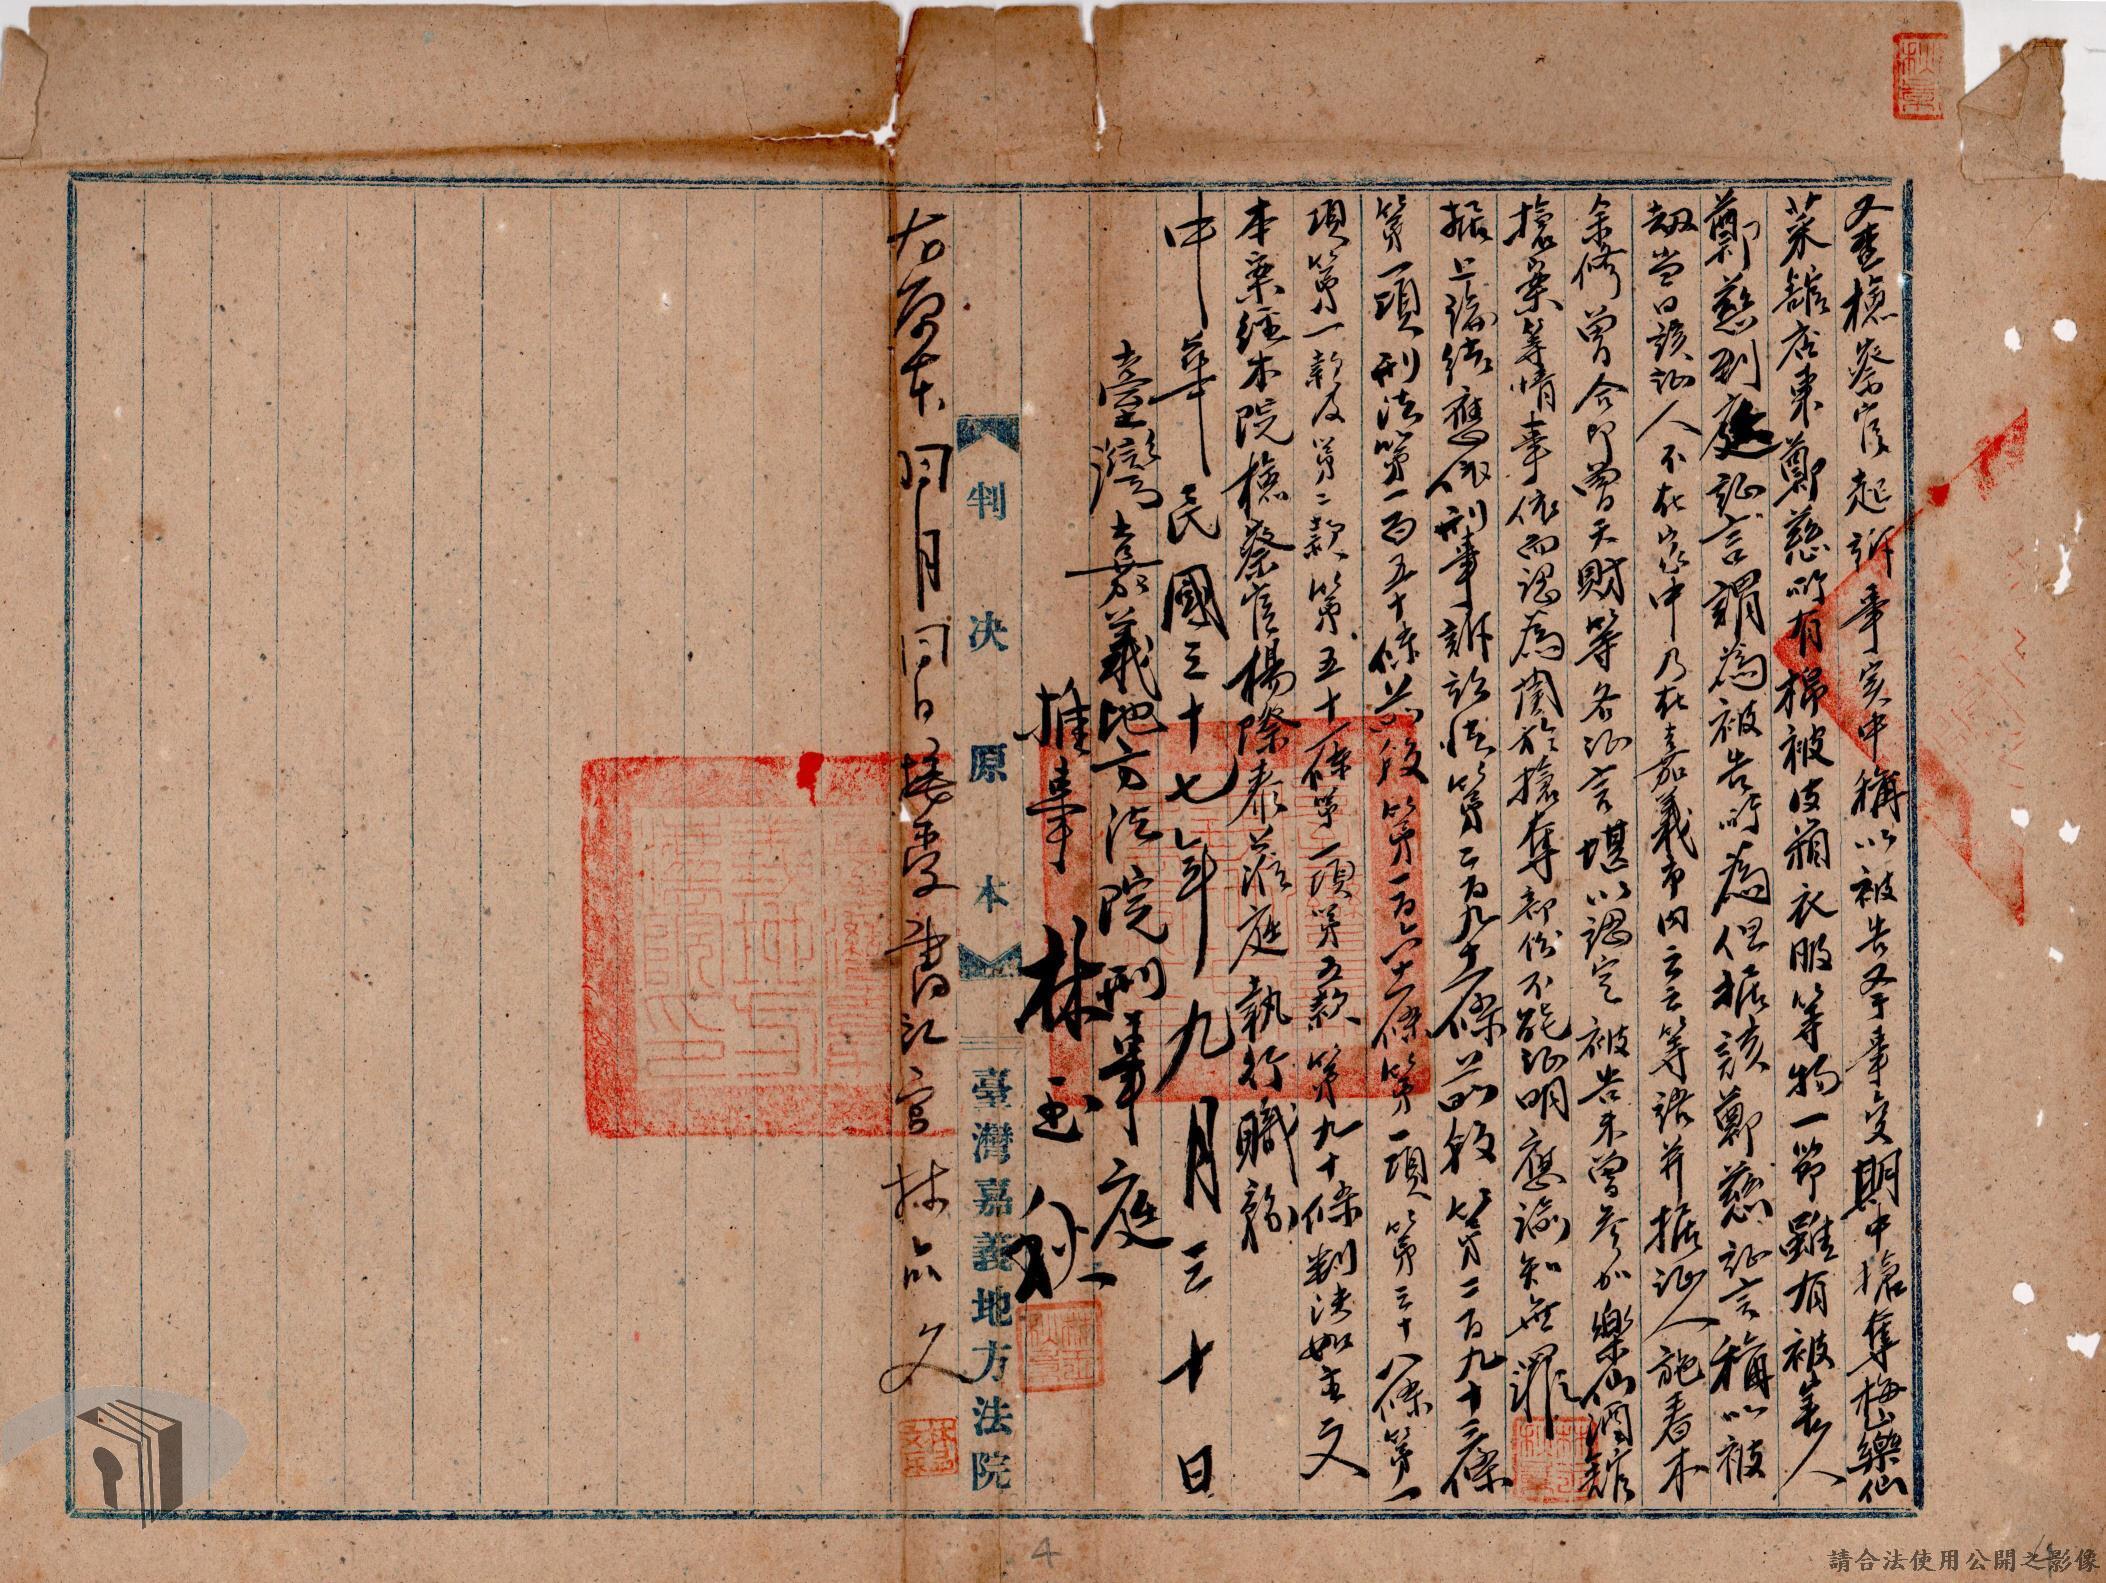 又查檢察官起訴事實中稱以被告又于事變期中搶奪梅山樂仙
菜館店東鄭慈所有棉被皮箱衣服等物一節雖有被害人
鄭慈到庭證言謂為被告所為但據該鄭慈證言稱以被
劫當日該証人不在家中乃在嘉義市内云云等語并據証人施春木
余修曾合印曾天財等各証言堪以認定被告未曾參加樂仙酒館
搶案等情事依而認為関於搶奪部份不能証明應諭知無罪
據上論結應依刑事訴訟法第二百九十一條前段第二百九十三條
第一項刑法第一百五十條前段第一百六十一條第一項第三十八條第一
項第一款及第二款第五十一條第一項第五款第九十條判決如主文
本案經本院檢察官楊際泰蒞庭執行職務
中華民國三十七年九月三十日
臺灣嘉義地方法院刑事庭
推事 林玉秋
判決原本 臺灣嘉義地方法院
右原本同月同日接受書記官 林品文
4
請合法使用公開之影像